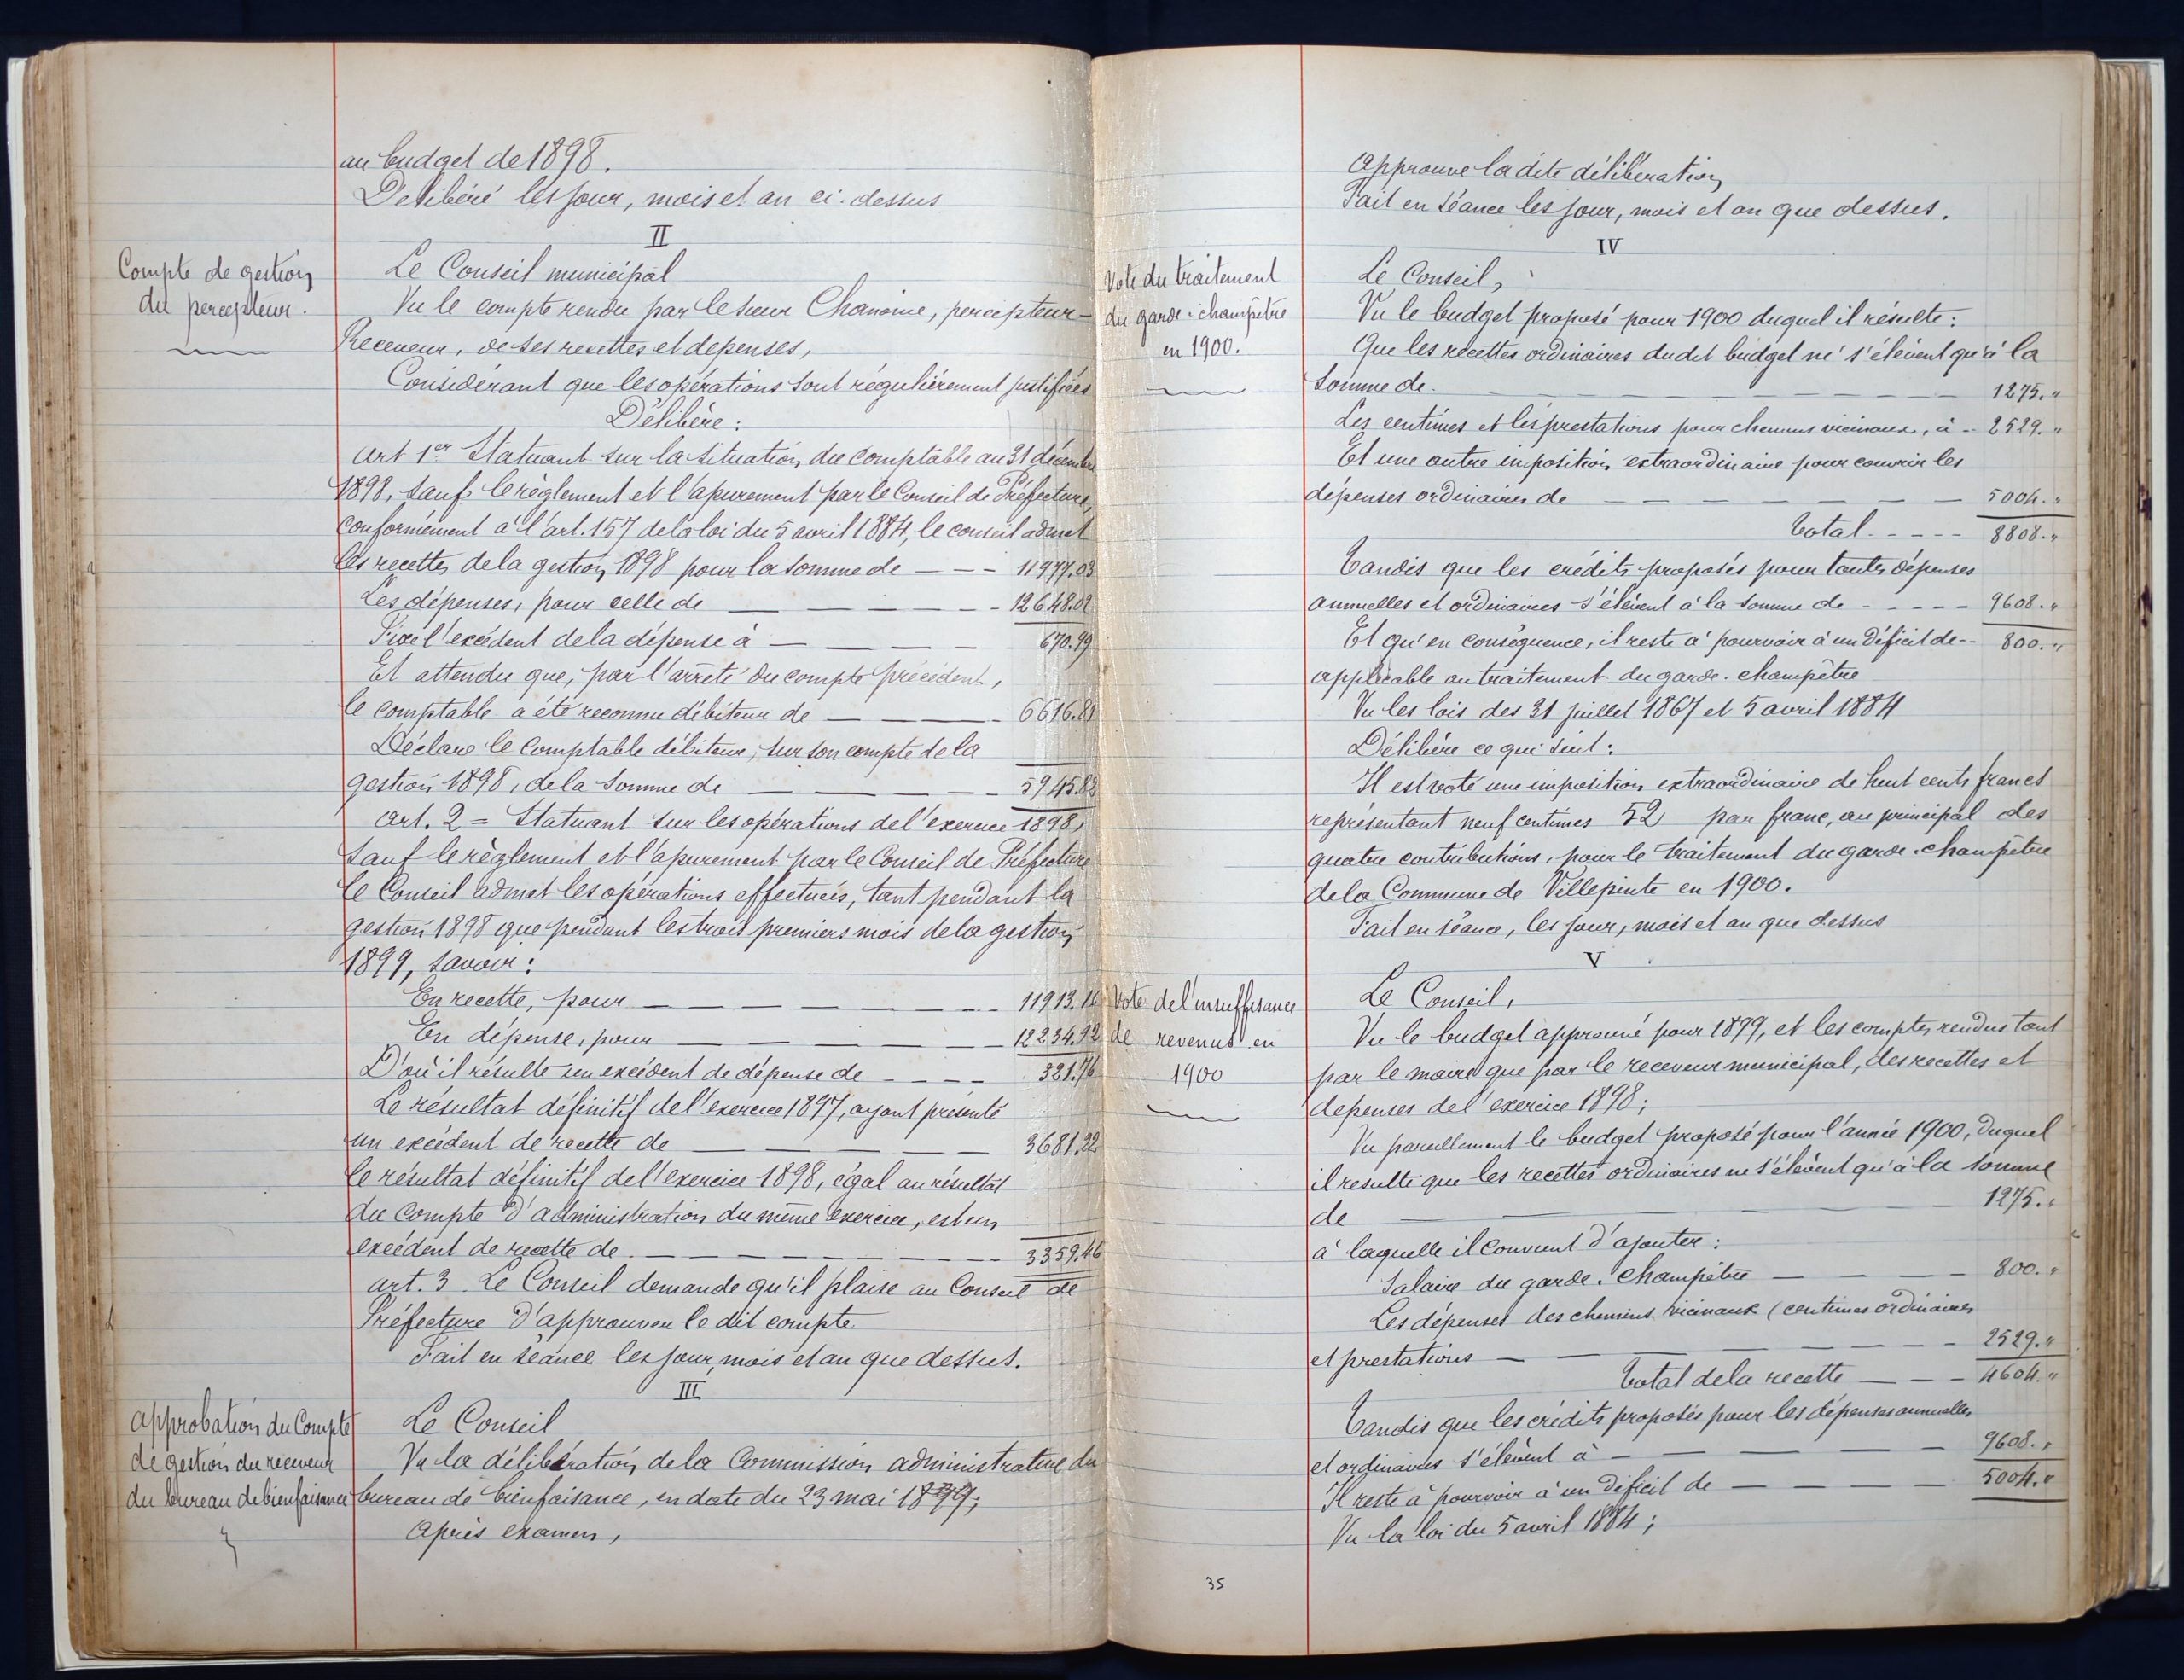 au budget de 1898.
Délibéré les jour, mois et an ci-dessus
II
Compte de gestion
du percepteur.
Le Conseil municipal
Vu le compte rendu par le sieur Chanoine, percepteur-
Receveur, de ses recettes et depenses,
Considérant que les opérations sont régulièrement justifiées
Délibère :
Art 1er Statuant sur la situation du comptable au 31 décembre
1898, sauf le règlement et l'apurement par le Conseil de Préfecture,
conformément à l'art. 157 de la loi du 5 avril 1884, le conseil admet
les recettes de la gestion 1898 pour la somme de — — - 11977.03
Les dépenses, pour celle de — — — — - - 12648.02
Fixe l'excédent de la dépense à — — — — 670.99
Et attendu que, par l'arrêté du compte précédent,
le comptable a été reconnu débiteur de — — — - 6616.81
Déclare le comptable débiteur, sur son compte de la
gestion 1898, de la somme de — — — - - 5945.82
Art. 2 = Statuant sur les opérations de l'exercice 1898,
sauf le règlement et l'apurement par le Conseil de Préfecture
le Conseil admet les opérations effectuées, tant pendant la
gestion 1898 que pendant les trois premiers mois de la gestion
1899, savoir :
En recette, pour — — — — — - - 11913.16
En dépense, pour — — — — — - 12234.92
D'où il résulte un excédent de dépense de - - - - 321.76
Le résultat définitif de l'exercice 1897, ayant présenté
un excédent de recette de — — — — — 3681.22
le résultat définitif de l'exercice 1898, égal au résultat
du compte d'administration du même exercice, est un
excédent de recette de. — — — — — — - 3359.46
Art. 3. Le Conseil demande qu'il plaise au Conseil de
Préfecture d'approuver le dit compte
Fait en séance les jour, mois et an que dessus.
III
Approbation du Compte
de gestion du receveur
du bureau de bienfaisance
Le Conseil
Vu la délibération de la Commission administrative du
bureau de bienfaisance, en date du 23 mai 1899;
Après examen,
Approuve la dite délibération
Fait en séance les jour, mois et an que dessus.
IV
Vote du traitement
du garde-champêtre
en 1900.
Le Conseil,
Vu le budget proposé pour 1900 duquel il résulte :
Que les recettes ordinaires dudit budget ne s'élèvent qu'à la
somme de. — — — — — — — — 1275. "
Les centimes et les prestations pour chemins vicinaux, à - - 2529. "
Et une autre imposition extraordinaire pour couvrir les
dépenses ordinaires de — — — — — — — 5004. "
Total - - - - - 8808. "
Tandis que les crédits proposés pour toutes dépenses
annuelles et ordinaires s'élèvent à la somme de - - - - - 9608. "
Et qu'en conséquence, il reste à pourvoir à un déficit de - - 800. "
applicable au traitement du garde-champêtre
Vu les lois des 31 juillet 1867 et 5 avril 1884
Délibère ce qui suit :
Il est voté une imposition extraordinaire de huit cents francs
représentant neuf centimes 52 par franc, au principal des
quatre contributions, pour le traitement du garde-champêtre
de la Commune de Villepinte en 1900.
Fait en séance, les jour, mois et an que dessus
V
Vote de l'insuffisance
de revenus en
1900
Le Conseil,
Vu le budget approuvé pour 1899, et les comptes rendus tant
par le maire que par le receveur municipal, des recettes et
depenses de l'exercice 1898;
Vu pareillement le budget proposé pour l'année 1900, duquel
il resulte que les recettes ordinaires ne s'élèvent qu'à la somme
de — — — — — — — — — 1275. "
à laquelle il convient d'ajouter :
Salaire du garde-champêtre — — — — 800. "
Les dépenses des chemins vicinaux (centimes ordinaires
et prestations — — — — — — — 2529. "
Total de la recette — — — 4604. "
Tandis que les crédits proposés pour les dépenses annuelles
et ordinaires s'élèvent à — — — — — — 9608. "
Il reste à pourvoir à un déficit de — — — — 5004. "
Vu la loi du 5 avril 1884 ;
35